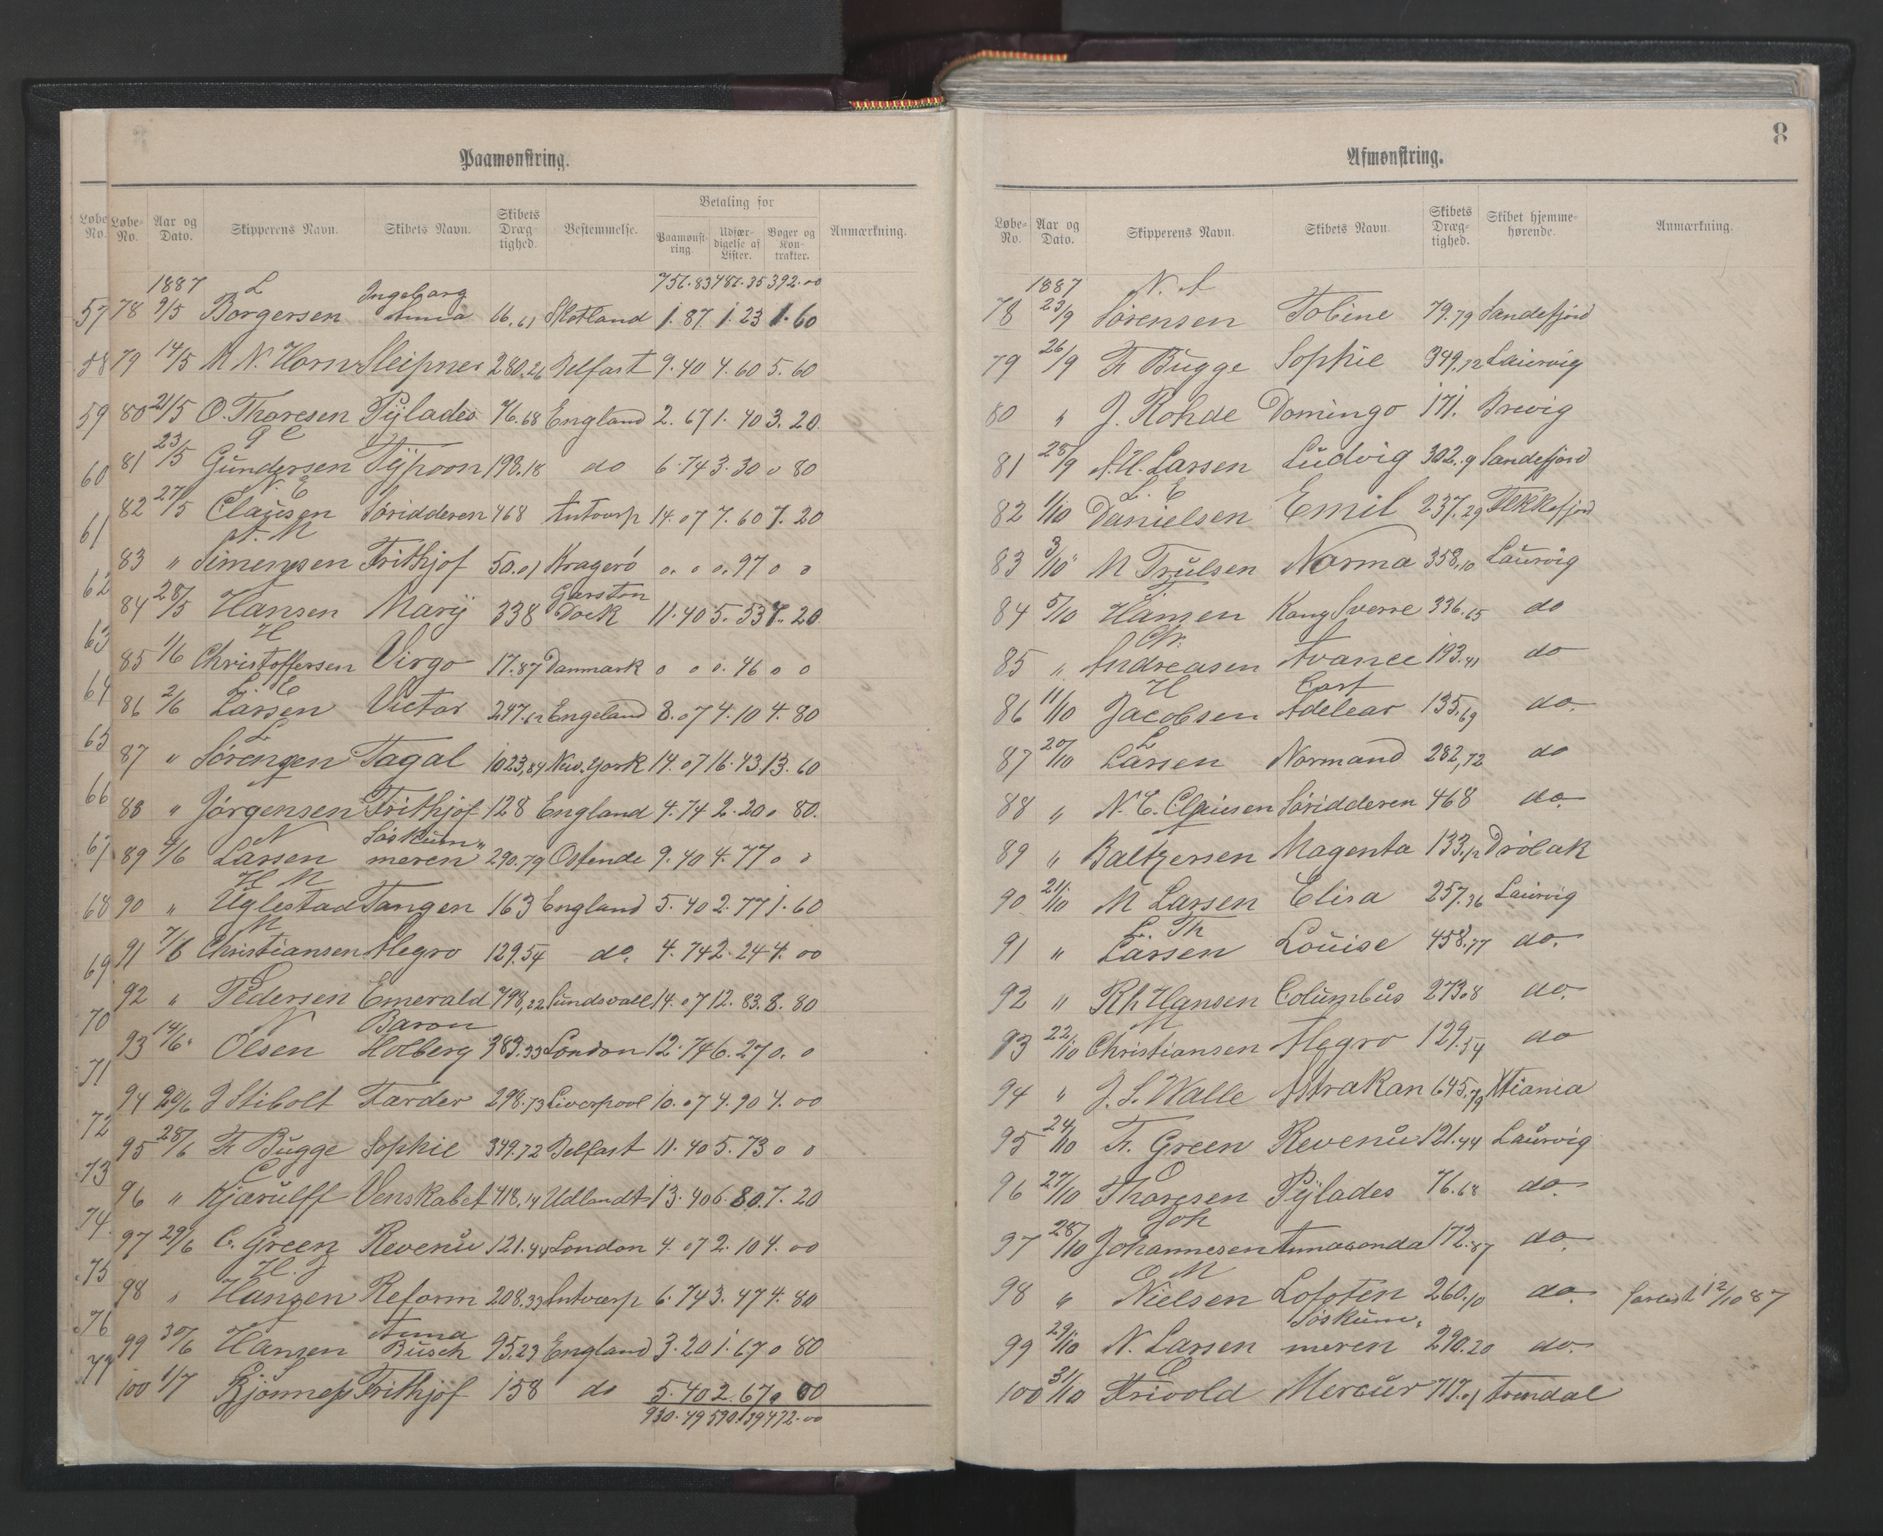 Paamønstring.
Løbe-No. Aar og Dato. Skipperens Navn. Skibets Navn. Skibets Dræg-tighed. Bestemmelse. Betaling for Paamønst-ring. Udfær-digelse af Lister. Bøger og Kon-trakter. Anmærkning.
1887 392.00
78 9/5 L Borgersen Ingeborg Anna 16.61 Skotland 1.87 1.23 1.60
79 14/5 M N. Horn Sleipner 280.26 Belfast 9.40 4.60 5.60
80 21/5 O. Thoresen Pÿlades 76.68 England 2.67 1.40 3.20
81 23/5 G C Gundersen Tÿphoon 198.18 do 6.74 3.30 0 80
82 27/5 N. E Clausen Søridderen 468 Antverp 14.07 7.60 7.20
83 " A. M Simensen Frithjof 50.01 Kragerø 0. 0 0.97 0 0
84 28/5 Hansen Marÿ 338 Garston Dock 11.40 5.53 7.20
85 1/6 H Christoffersen Virgo 17.87 Danmark 0 0 0.46 0 0
86 2/6 L C Larsen Victor 247.62 Engeland 8.07 4.10 4.80
87 " L Sørensen Tagal 1023,84 New. York 14.07 16.43 13.60
88 " Jørgensen Frithjof 128 England 4.74 2.20 0 80.
89 4/6 N Larsen Søskum" meren 290.79 Ostende 9.40 4.77 0 0
90 " H M Uglestad Tangen 163 England 5.40 2.77 1.60
91 7/6 M Christiansen Alegro 129.54 do. 4.74 2.24 4.00
92 " Pedersen Emerald 798,22 Sundsvall 14.07 12.83 8.80
93 14/6 N Olsen Baron Holberg 383.33 London 12.74 6.27 0. 0
94 20/6 J Stibolt Færder 298.73 Liverpool 10.07 4.90 4.00
95 28/6 Fr Bugge Sophie 349.72 Belfast 11.40 5.73 0 0
96 " C Kjærulff Venskabet 418.14 Udlandt 13.40 6.80. 7.20
97 29/6 C. Green Revenü 121.44 London 4.07 2.10 4.00
98 " H. J Hansen Reform 208.33 Antverp 6.74 3.47 4.80
99 30/6 Hansen Anna Busch 95.23 England 3.20 1.67 0 80
100 1/7 Frithjof 158 do 5.40 2.67 0 00
472.00
57
58
59
60
61
62
63
64
65
66
67
68
69
70
71
72
73
74
75
76
77
8
Afmønstring.
Løbe-No. Aar og Dato. Skipperens Navn. Skibets Navn. Skibets Dræg-tighed. Skibet hjemme-hørende. Anmærkning.
1887
78 23/9 N. A. Sørensen Tobine 79.79 Sandefjord
79 26/9 Fr Bugge Sophie 349.72 Laurvig
80 " J. Rohde Domingo 171. Brevig
81 28/9 A. H. Larsen Ludvig 302.9 Sandefjord
82 1/10 L. E Danielsen Emil 237.29 Flekkefjord
83 3/10 M Trulsen Norma 358,10 Laurvig
84 5/10 Hansen Kong Sverre 336.65 do
85 " Chr. Andreasen Avance 193.41 do
86 11/10 H Jacobsen Cort Adelear 135.69 do.
87 20/10 L Larsen Normand 282,72 do
88 " N. E. Clausen Søridderen 468 do.
89 " Baltzersen Magenta 133.12 Drøbak
90 21/10 M Larsen Elisa 257.36 Laurvig
91 " L. Th Larsen Louise 458.77 do.
92 " Rh Hansen Columbus 273.08 do.
93 22/10 M Christiansen Alegro 129.54 do
94 " J. S. Walle Astrakan 645.79 Xtiania
95 24/10 Fr. Green Revenü 121.44 Laurvig
96 27/10 O Thoresen Pÿlades 76.68 do.
97 28/10 Joh Johannesen Annaconda 172.87 do.
98 " O M Nielsen Lofoten 260.10 do. forlist 12/10 87
99 29/10 N. Larsen Søskum. meren 290.20 do.
100 31/10 C Frivold Mercur 717.01 Arendal